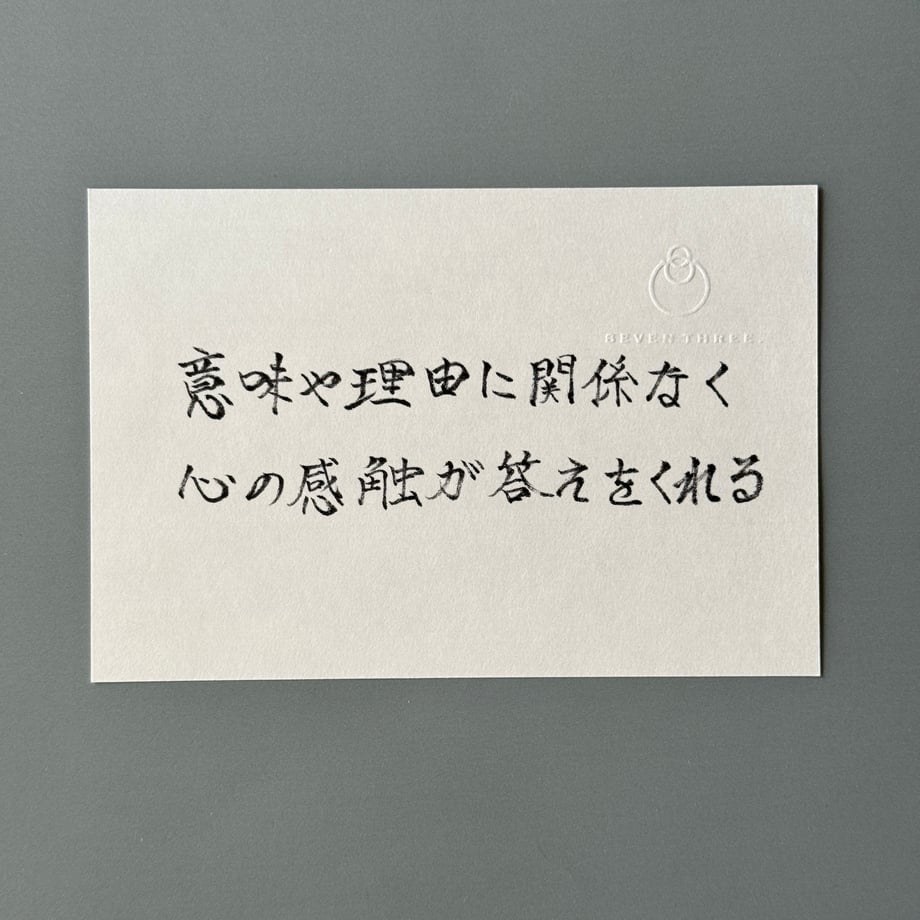 SEVEN THREE.
意味や理由に関係なく
心の感触が答えをくれる